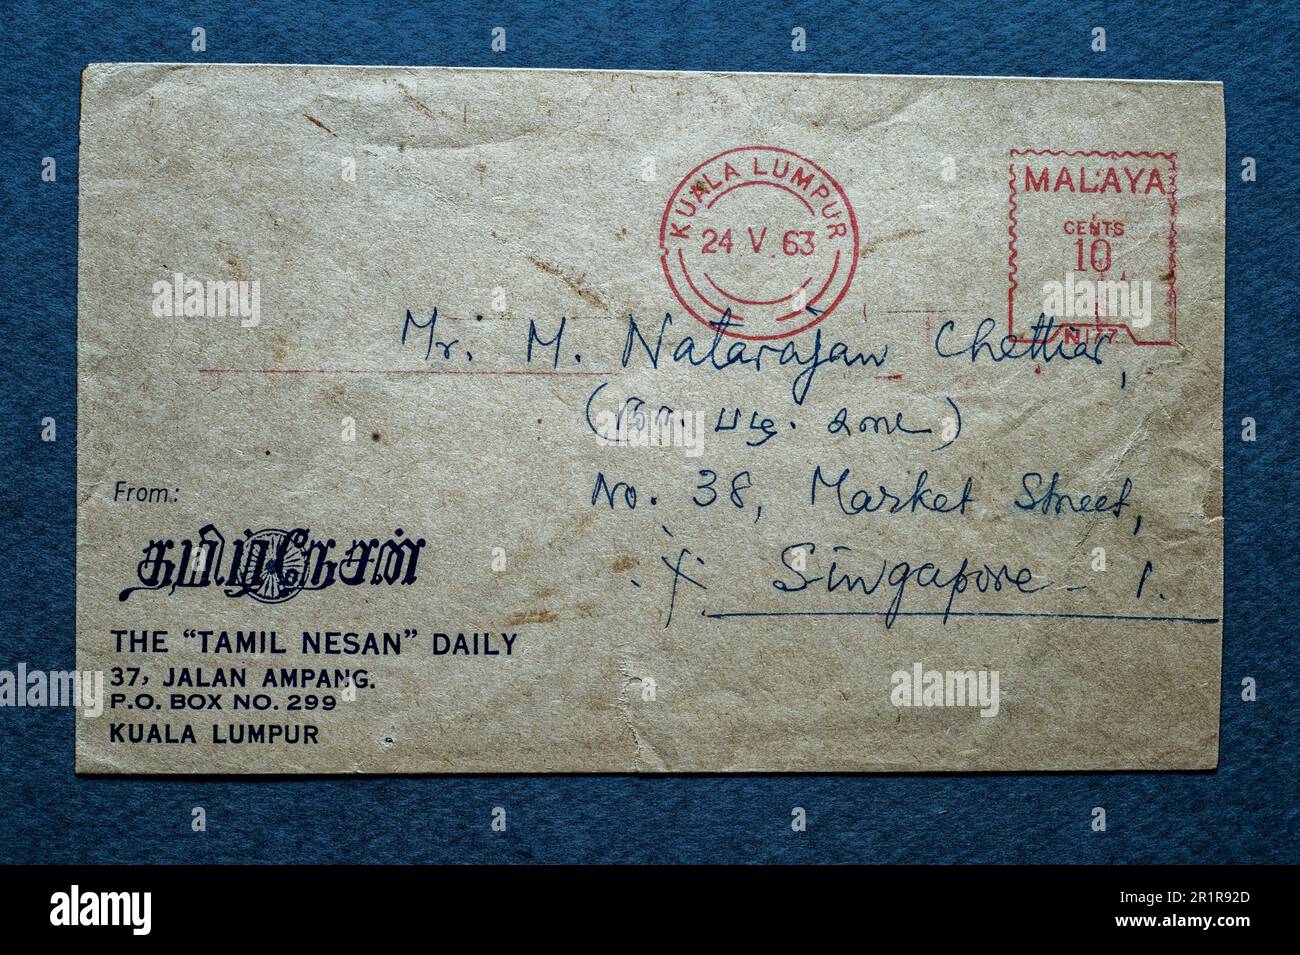 KUALA LUMPUR
24 V 63
MALAYA
CENTS
10
N177
Mr. M. Natarajan Chettiar,
No. 38, Market Street,
Singapore - 1.
From:
தமிழ் நேசன்
THE “TAMIL NESAN” DAILY
37, JALAN AMPANG.
P.O. BOX NO. 299
KUALA LUMPUR
alamy
Image ID: 2R1R92D
www.alamy.com